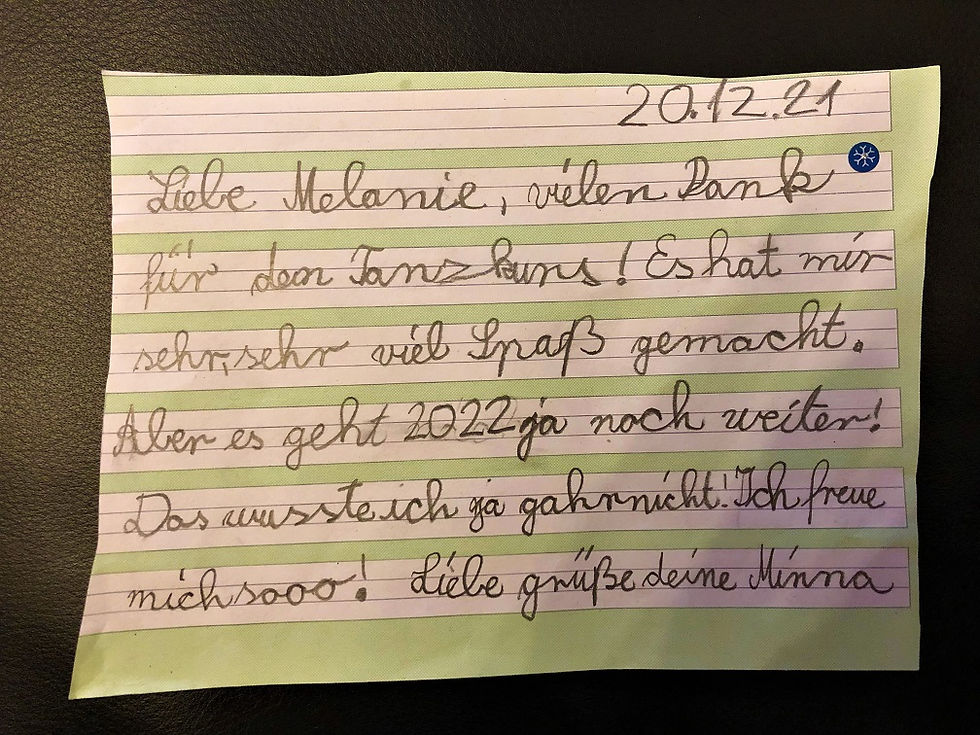 20.12.21
Liebe Melanie, vielen Dank
für den Tanzkurs! Es hat mir
sehr, sehr viel Spaß gemacht.
Aber es geht 2022 ja noch weiter!
Das wusste ich ja gahrnicht! Ich freue
mich sooo! Liebe grüße deine Minna